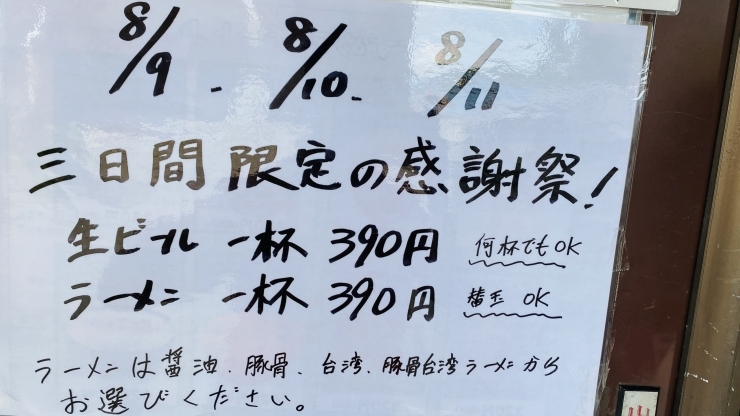 8/9 . 8/10. 8/11
三日間限定の感謝祭!
生ビール 一杯 390円 何杯でもOK
ラーメン 一杯 390円 替玉 OK
ラーメンは醤油、豚骨、台湾、豚骨台湾ラーメンから
お選びください。